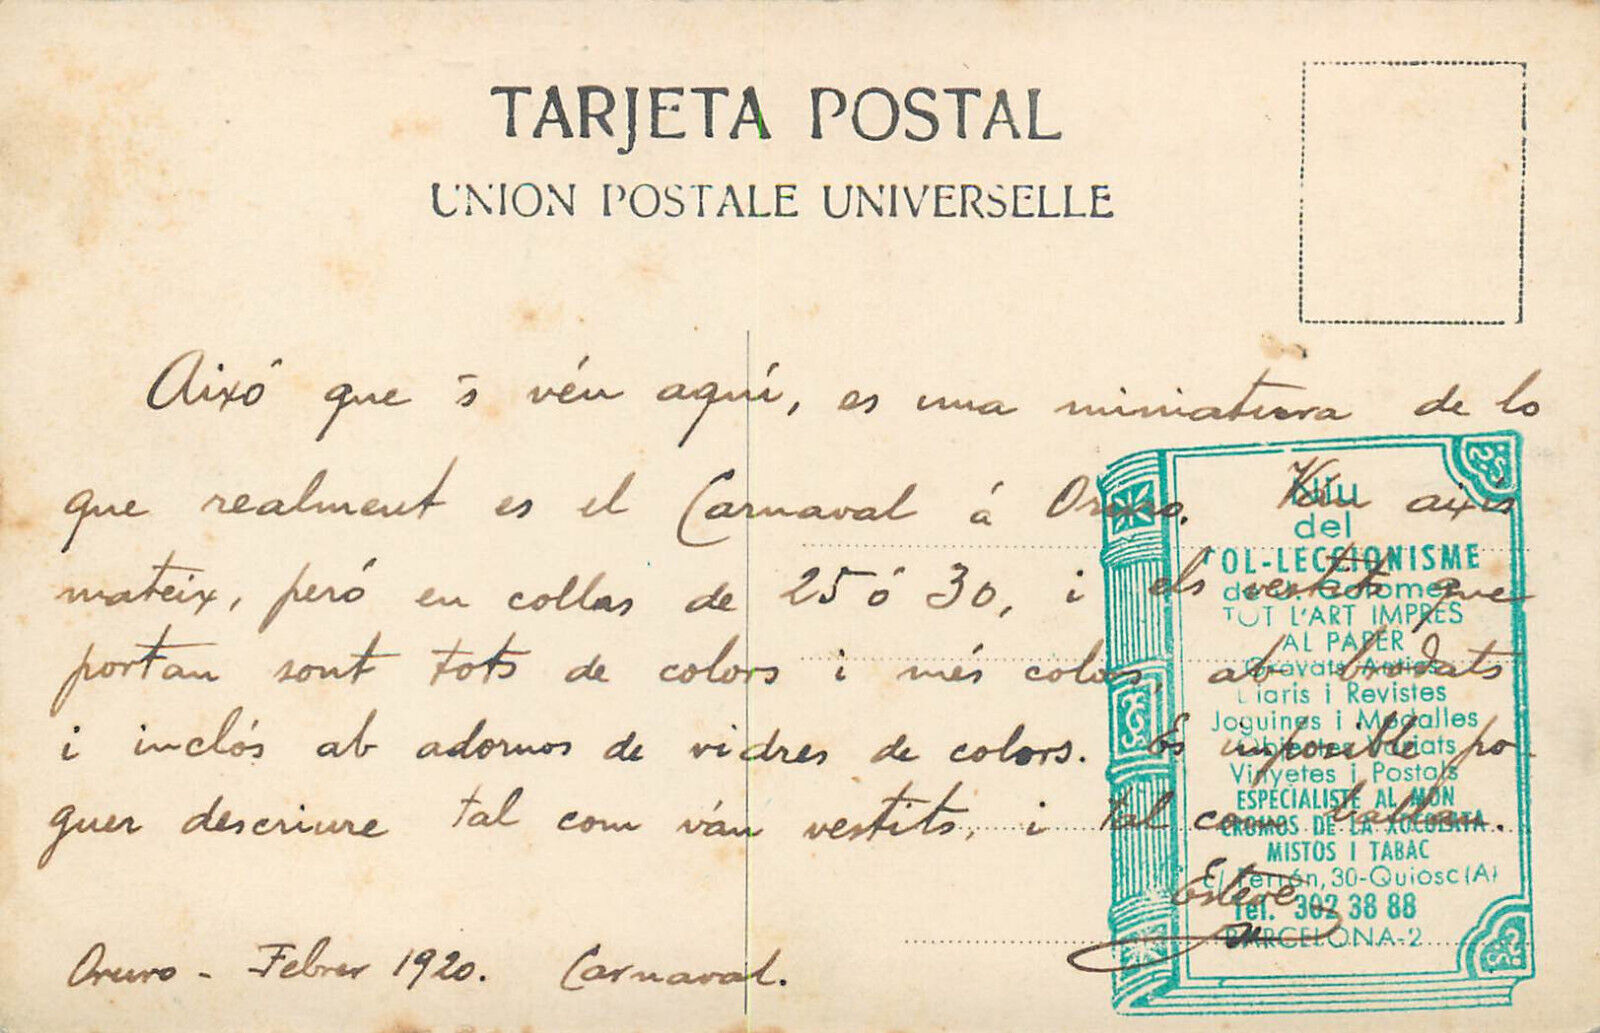 TARJETA POSTAL
UNION POSTALE UNIVERSELLE
Aixó que s véu aquí, es una miniatura de lo
que realment es el Carnaval á Oruro. Ván aixís
mateix, peró en collas de 25 ó 30, i els vestits que
portan sont tots de colors i més colors, ab brodats
i inclós ab adornos de vidres de colors. Es imposible po-
guer descriure tal com ván vestits, i tal com ballan.
Esteve
Oruro - Febrer 1920. Carnaval.
Niu
del
COL-LECCIONISME
de J. Colomer
TOT L'ART IMPRES
AL PAPER
Gravats Antics
Diaris i Revistes
Joguines i Medalles
Objectes Variats
Vinyetes i Postals
ESPECIALISTE AL MON
CROMOS DE LA XOCOLATA
MISTOS I TABAC
c/ Ferrán, 30-Quiosc (A)
Tel. 302 38 88
BARCELONA-2